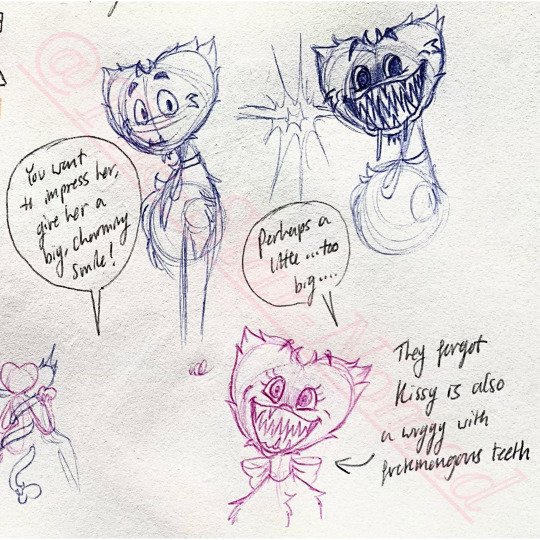 You want
to impress her,
give her a
big, charming
smile!
Perhaps a
little ... too
big....
They forgot
Kissy is also
a wuggy with
teeth